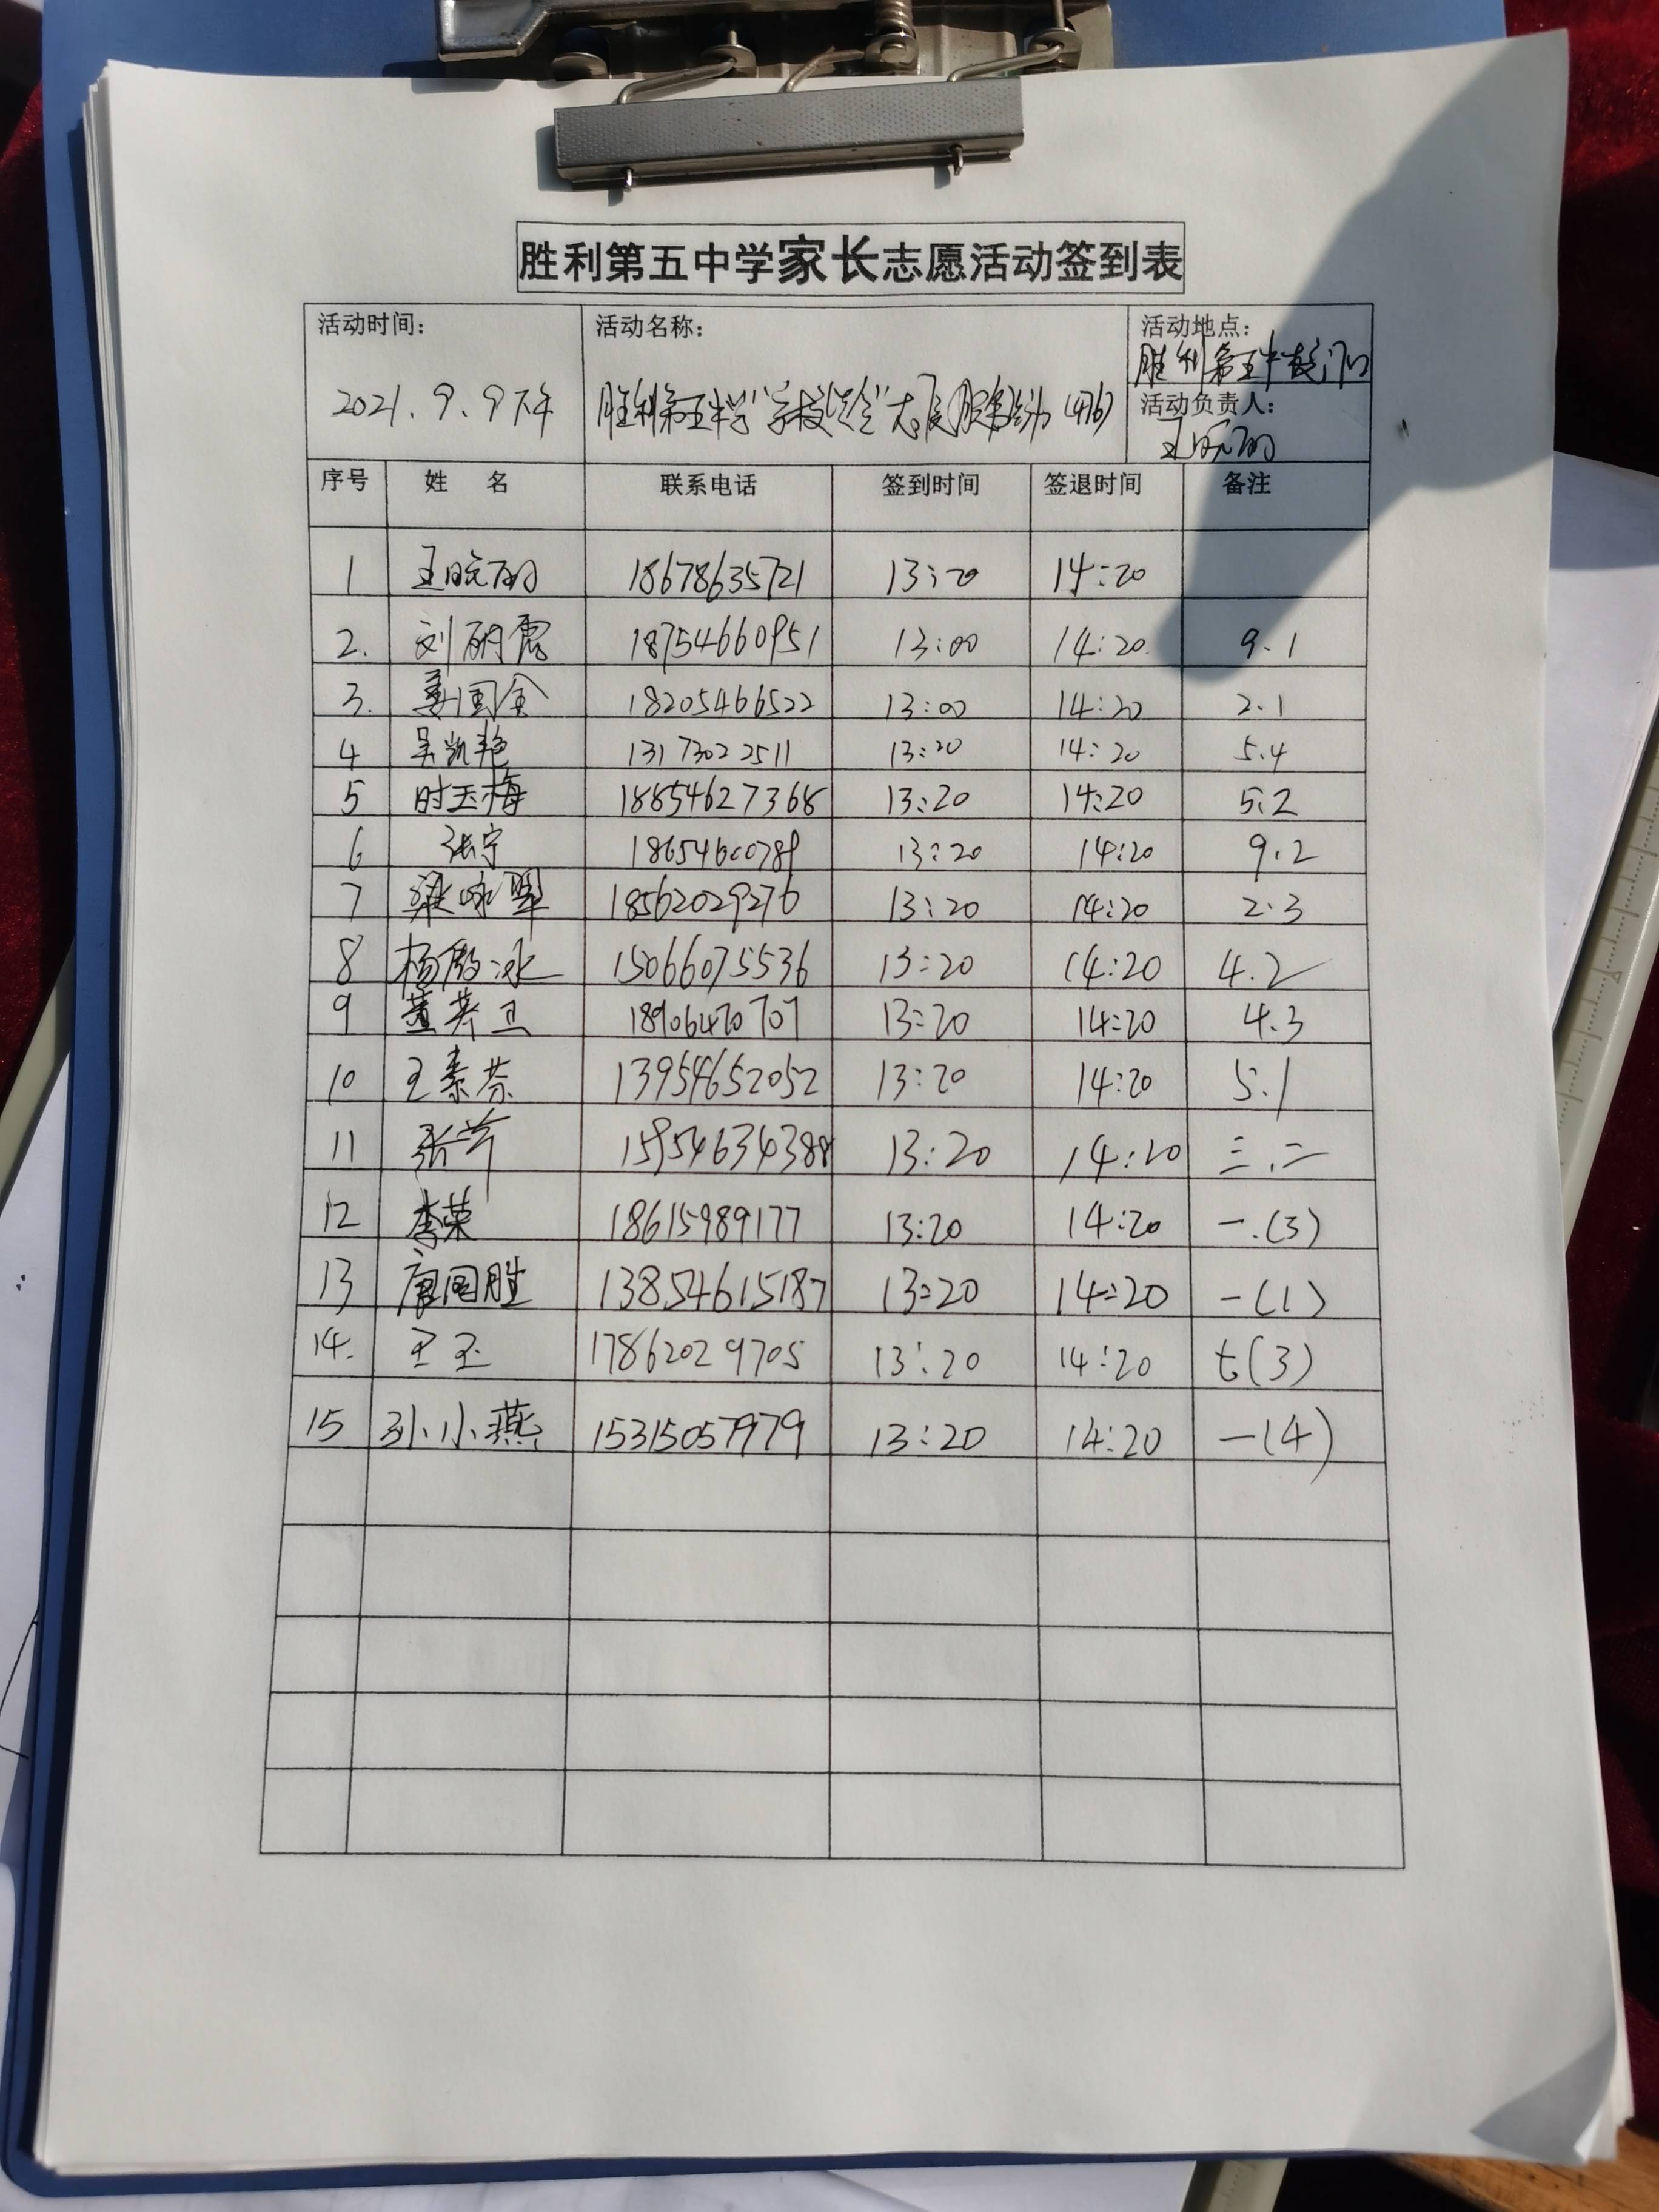 胜利第五中学家长志愿活动签到表
活动时间： 活动名称： 活动地点：
胜利第五中校门口
2021.9.9下午 胜利第五中学"学校" 志愿服务活动
活动负责人：
王晓丽
序号 姓 名 联系电话 签到时间 签退时间 备注
1 王晓丽 18678635721 13:20 14:20
2. 刘丽霞 18754660951 13:00 14:20 9.1
3. 姜国金 18205466522 13:00 14:20 2.1
4 吴凯艳 13173022511 13:20 14:20 5.4
5 时玉梅 18854627368 13:20 14:20 5.2
6 张宁 18654600789 13:20 14:20 9.2
7 梁咏翠 18562029276 13:20 14:20 2.3
8 杨殿冰 15066075536 13:20 14:20 4.2
9 董卫 18906470707 13:20 14:20 4.3
10 王素芬 13954652052 13:20 14:20 5.1
11 张芹 15954634388 13:20 14:20 三.二
12 李荣 18615989177 13:20 14:20 一.(3)
13 唐国胜 13854615187 13:20 14:20 一(1)
14. 王玉 17862029705 13:20 14:20 七(3)
15 孙小燕 15315057979 13:20 14:20 一(4)